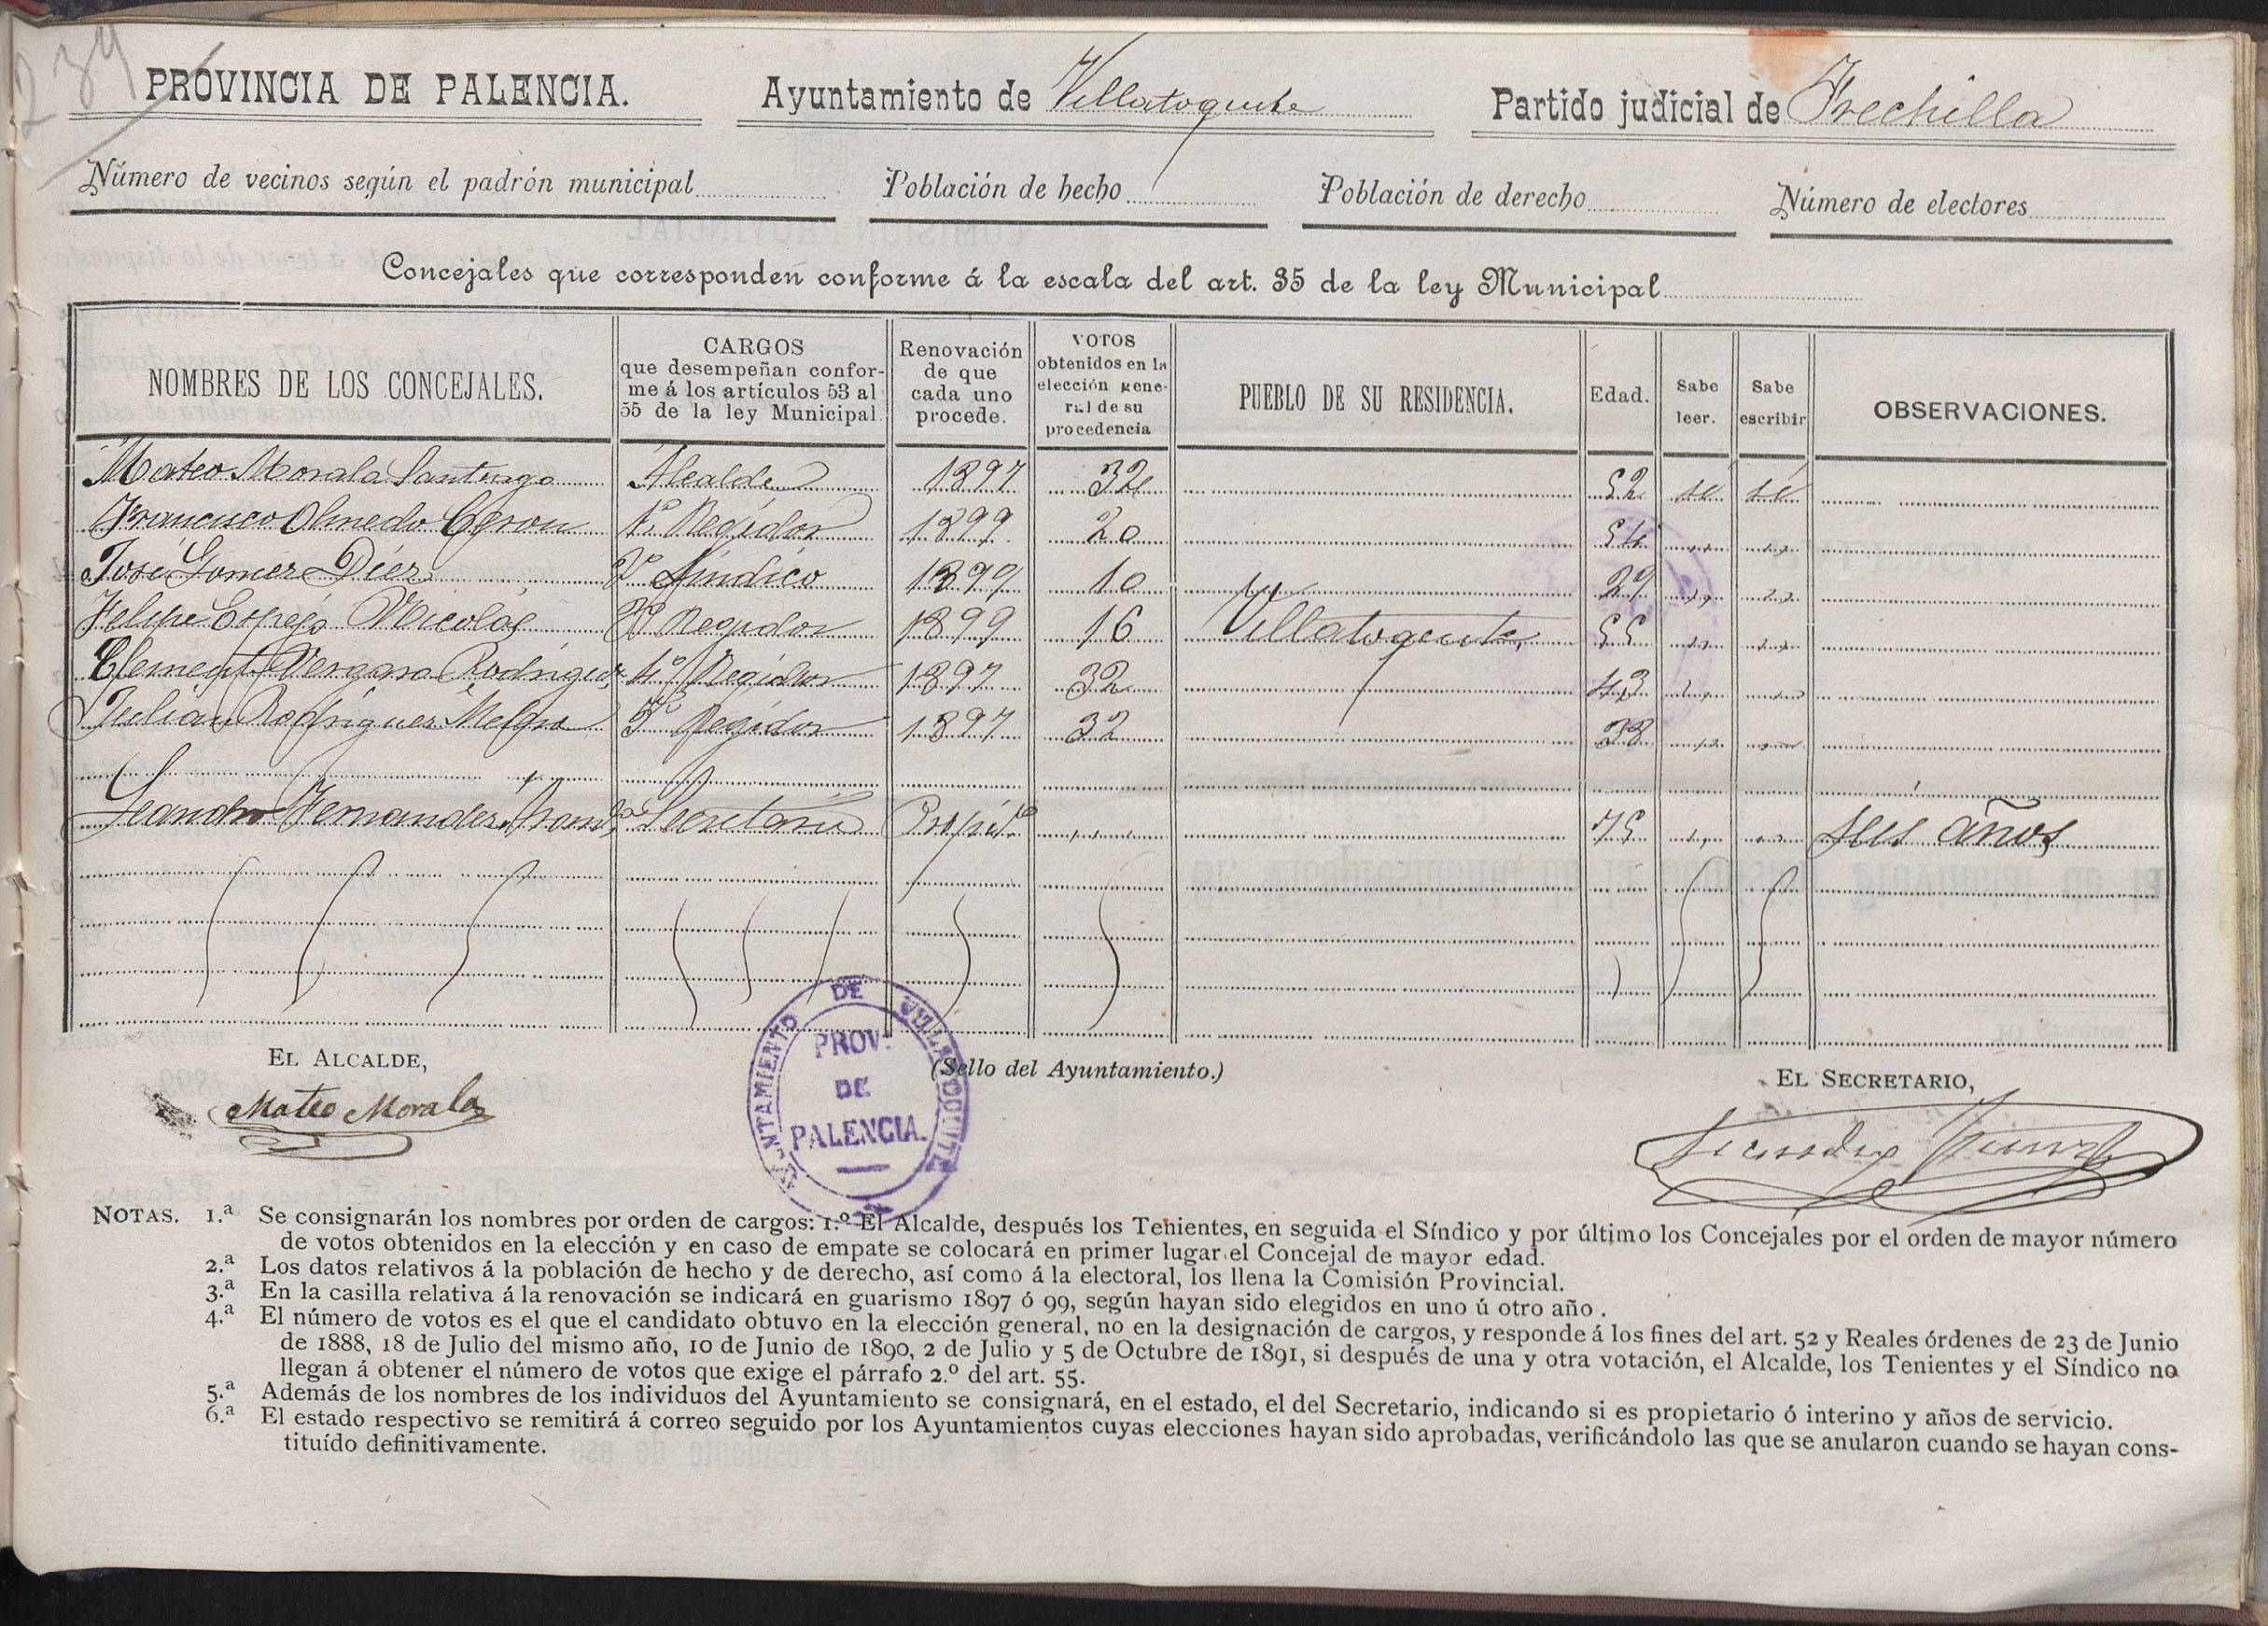 239
PROVINCIA DE PALENCIA. Ayuntamiento de Villatoquite Partido judicial de Frechilla
Número de vecinos según el padrón municipal Población de hecho Población de derecho Número de electores
Concejales que corresponden conforme á la escala del art. 35 de la ley Municipal
NOMBRES DE LOS CONCEJALES. CARGOS que desempeñan conforme á los artículos 53 al 55 de la ley Municipal. Renovación de que cada uno procede. VOTOS obtenidos en la elección general de su procedencia PUEBLO DE SU RESIDENCIA. Edad. Sabe leer. Sabe escribir OBSERVACIONES.
Mateo Morala Santiago Alcalde 1897 32 52 si si
Francisco Olmedo Ceron 1º Regidor 1899 20 54 " "
José Gomez Diez 2º Síndico 1899 10 29 " "
Felipe Espejo Nicolás Regidor 1899 16 Villatoquite 55 " "
Clemente Vergara Rodriguez 4º Regidor 1897 32 43 " "
Julian Rodriguez Melgar 5º Regidor 1897 32 38 " "
Leandro Fernandez Secretario Propit.º " 75 " " seis años
EL ALCALDE, (Sello del Ayuntamiento.) EL SECRETARIO,
Mateo Morala
AYUNTAMIENTO DE VILLATOQUITE
PROV. DE PALENCIA.
NOTAS. 1.ª Se consignarán los nombres por orden de cargos: 1.º El Alcalde, después los Tenientes, en seguida el Síndico y por último los Concejales por el orden de mayor número
de votos obtenidos en la elección y en caso de empate se colocará en primer lugar el Concejal de mayor edad.
2.ª Los datos relativos á la población de hecho y de derecho, así como á la electoral, los llena la Comisión Provincial.
3.ª En la casilla relativa á la renovación se indicará en guarismo 1897 ó 99, según hayan sido elegidos en uno ú otro año.
4.ª El número de votos es el que el candidato obtuvo en la elección general, no en la designación de cargos, y responde á los fines del art. 52 y Reales órdenes de 23 de Junio
de 1888, 18 de Julio del mismo año, 10 de Junio de 1890, 2 de Julio y 5 de Octubre de 1891, si después de una y otra votación, el Alcalde, los Tenientes y el Síndico no
llegan á obtener el número de votos que exige el párrafo 2.º del art. 55.
5.ª Además de los nombres de los individuos del Ayuntamiento se consignará, en el estado, el del Secretario, indicando si es propietario ó interino y años de servicio.
6.ª El estado respectivo se remitirá á correo seguido por los Ayuntamientos cuyas elecciones hayan sido aprobadas, verificándolo las que se anularon cuando se hayan cons-
tituído definitivamente.